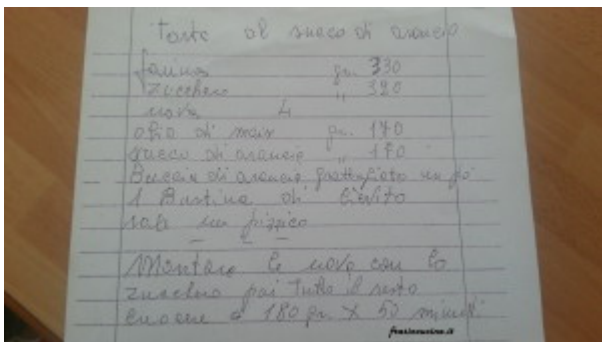 Torta al succo di arancio
farina gr. 330
Zucchero " 320
uova 4
olio di mais gr. 170
succo di arancio " 170
Buccia di arancio grattugiato un pò
1 Bustina di lievito
sale un pizzico
Montare le uova con lo
zucchero poi tutto il resto
cuocere a 180 gr. x 50 minuti
frasincucina.it